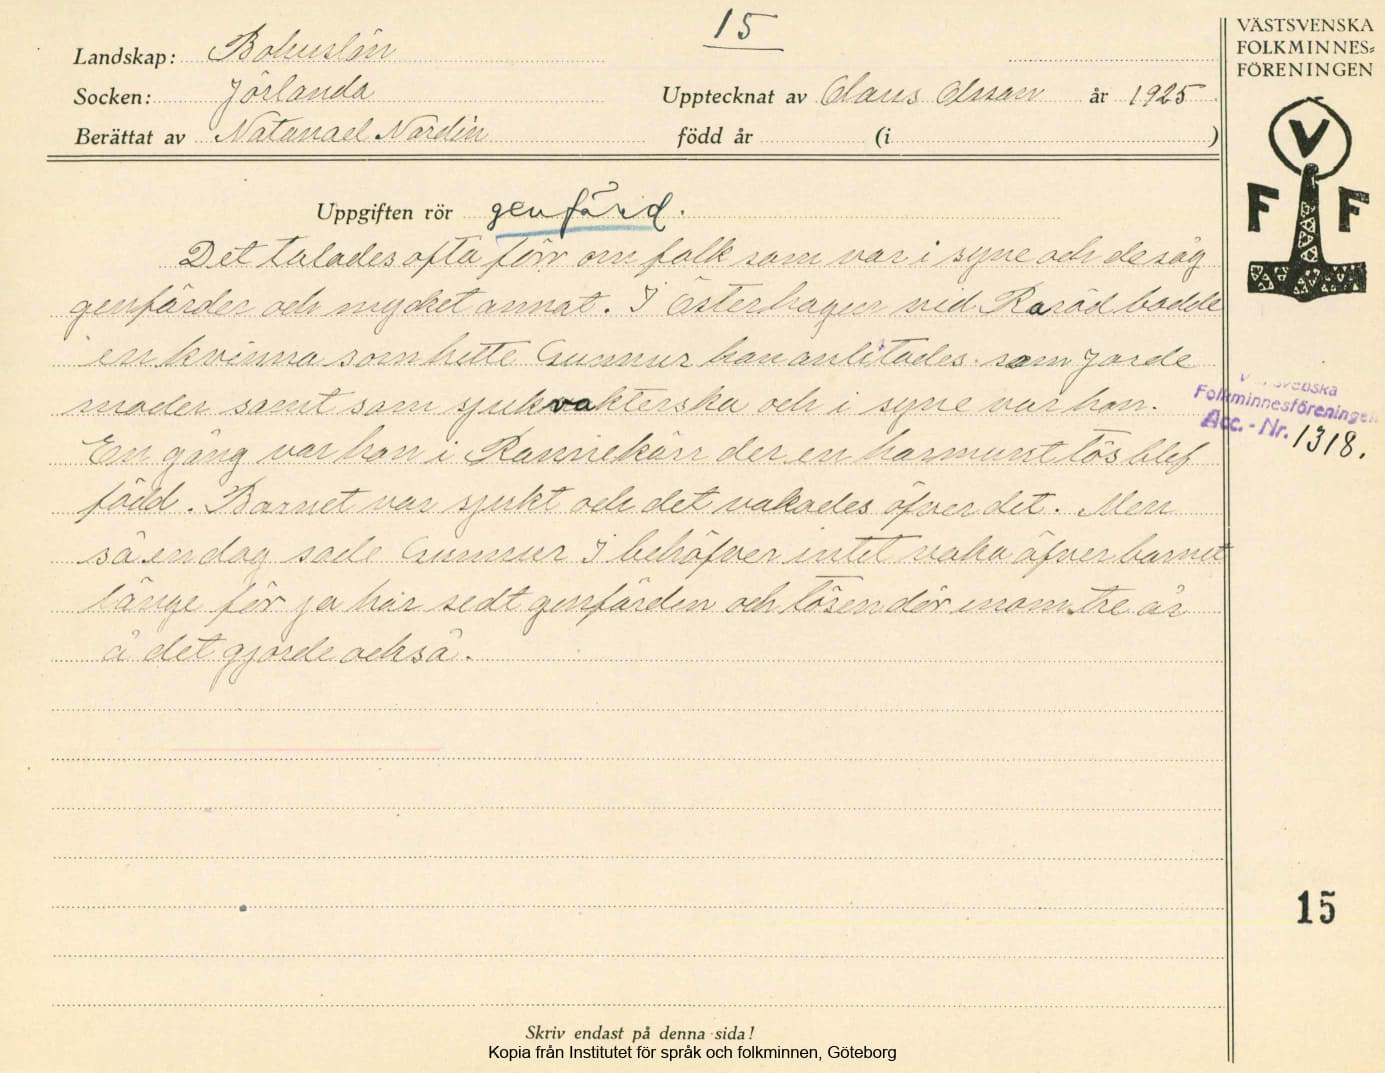 15
Landskap: Bohuslän
Socken: Jörlanda
Upptecknat av Claus Olsson år 1925
Berättat av Natanael Nordin född år (i )
Uppgiften rör genfärd.
Det talades ofta förr om folk som var i syne och de såg
genfärder och mycket annat. I Österhagen vid Raröd bodde
en kvinna som hette Gunnur hon anlitades som jorde
moder samt som sjukvakterska och i syne var hon.
En gång var hon i Rannekärr der en harmunt tös blef
född. Barnet var sjukt och det vakades öfver det. Men
så en dag sade Gunnur I behöfver intet vaka öfver barnet
länge för ja har sedt genfärden och tösen dör inom tre år
å det gjorde också.
Skriv endast på denna sida!
Kopia från Institutet för språk och folkminnen, Göteborg
VÄSTSVENSKA
FOLKMINNES-
FÖRENINGEN
V
F F
Västsvenska
Folkminnesföreningen
Acc. - Nr. 1318.
15